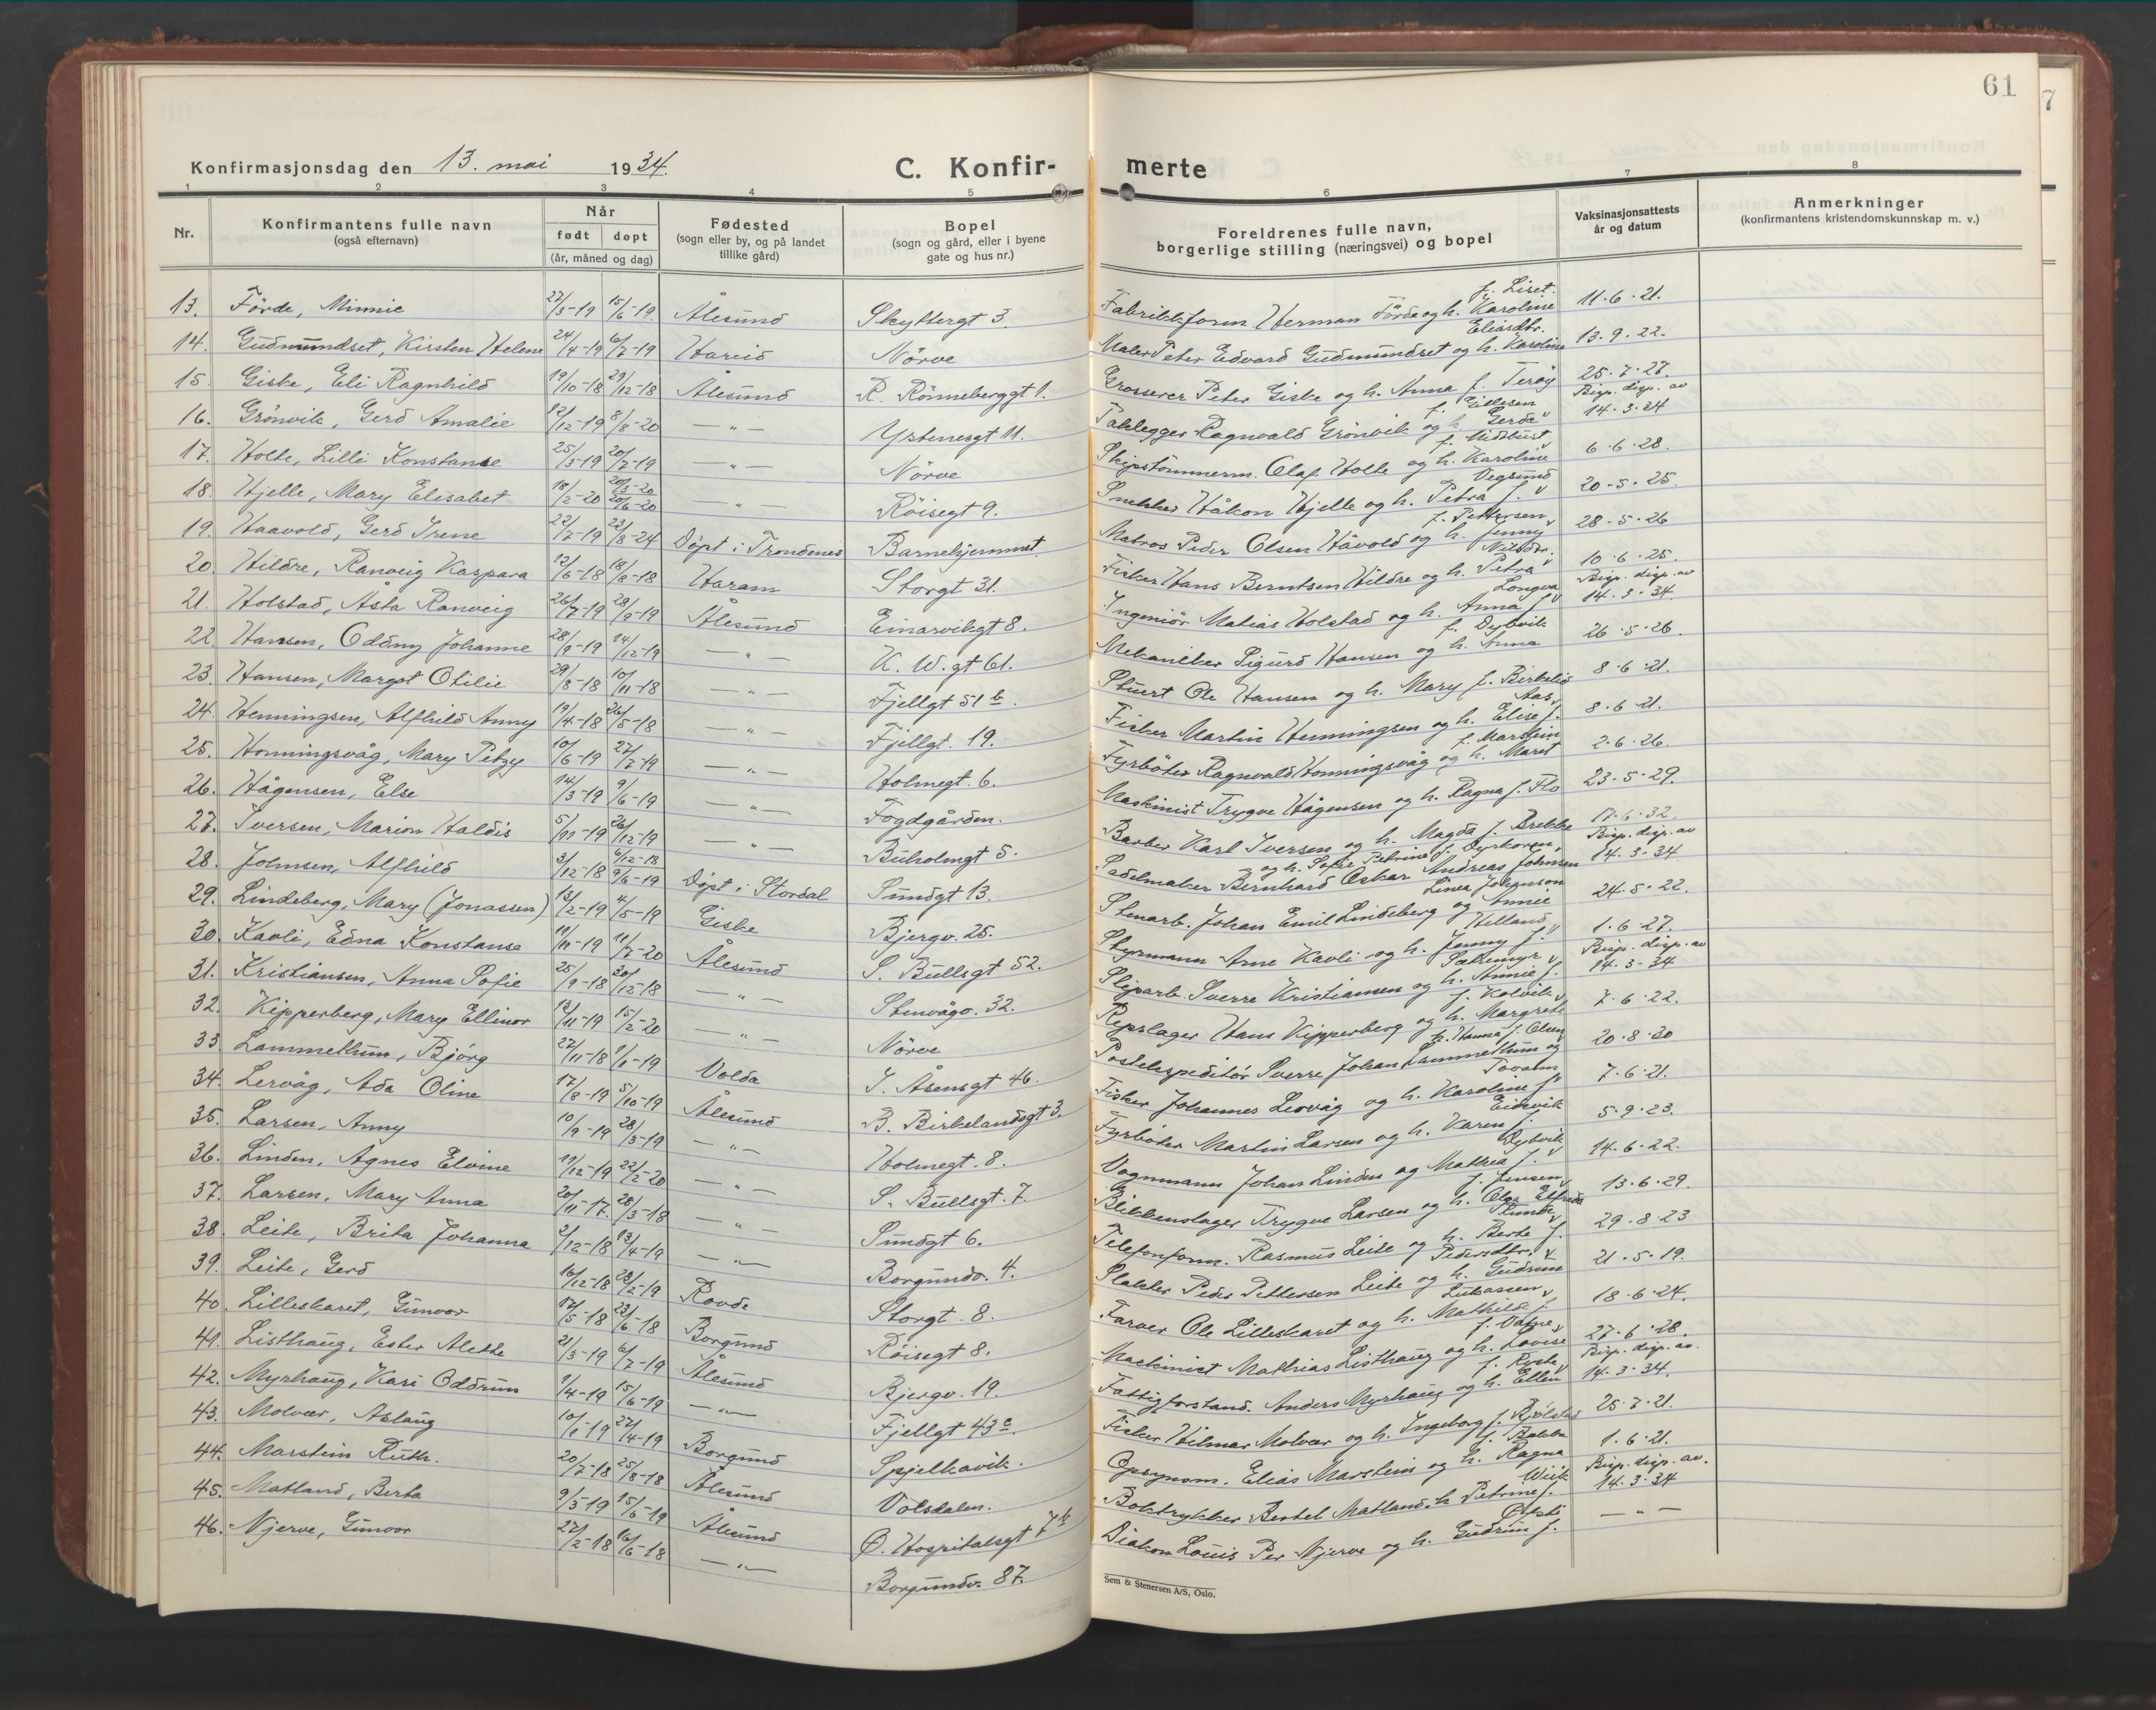 61
Konfirmasjonsdag den 13. mai 1934.
C. Konfir-
merte
1 2 3 4 5 6 7 8
Nr.
Konfirmantens fulle navn
(også efternavn)
Når
født døpt
(år, måned og dag)
Fødested
(sogn eller by, og på landet
tillike gård)
Bopel
(sogn og gård, eller i byene
gate og hus nr.)
Foreldrenes fulle navn,
borgerlige stilling (næringsvei) og bopel
Vaksinasjonsattests
år og datum
Anmerkninger
(konfirmantens kristendomskunnskap m. v.)
13. Förde, Minnie 27/3-19 15/6-19. Ålesund Skyttergt 3. Fabrikkform. Herman Förde og h. Karoline f. Liset. 11.6.21.
14. Gudmundset, Kirsten Helene 24/4-19 6/7-19 Hareid Nörve Maler Peter Edvard Gudmundset og h. Karoline Eliasdtr. 13.9.22.
15. Giske, Eli Ragnhild 19/10-18 29/12-18 Ålesund R. Rönneberggt 1. Grosserer Peter Giske og h. Anna f. Teröy 25.7.27.
16. Grönvik, Gerd Amalie 12/12-19 8/8-20 — " — Ystenesgt 11. Taklegger Ragnvald Grönvik og h. Gerda f. Gillesen Bisp. disp. av 14.3.34
17. Holte, Lilli Konstanse 25/3-19 20/7-19 — " — Nörve Skipstömmerm. Olaf Holte og h. Karoline f. Midtbust 6.6.28.
18. Hjelle, Mary Elisabet 18/2-20 20/3-20 20/6-20 — " — Röisegt 9. Snekker Håkon Hjelle og h. Petra f. Vegsund 20.5.25.
19. Haavold, Gerd Irene 22/7-19 22/8-24 Döpt i Trondenes Barnehjemmet. Matros Peder Olsen Håvold og h. Jenny f. Pettersen 28.5.26
20. Hildre, Ranveig Kaspara 12/6-18 18/8-18 Haram Storgt 31. Fisker Hans Berntsen Hildre og h. Petra Nilsdtr. 10.6.25.
21. Holstad, Åsta Ranveig 26/7-19 28/9-19 Ålesund Einarvikgt 8. Ingeniör Matias Holstad og h. Anna f. Longva Bisp. disp. av 14.3.34.
22. Hansen, Oddny Johanne 28/9-19 14/12-19 — " — K. W. gt 61. Mekaniker Sigurd Hansen og h. Anna f. Dybvik 26.5.26.
23. Hansen, Margot Otilie 29/8-18 10/11-18 — " — Fjellgt 51 b. Stuert Ole Hansen og h. Mary f. Birkelid 8.6.21.
24. Henningsen, Alfhild Anny 19/4-18 26/5-18 — " — Fjellgt. 19. Fisker Martin Henningsen og h. Elise f. Aas 8.6.21.
25. Honningsvåg, Mary Petzy 10/6-19 27/7-19 — " — Holmegt. 6. Fyrböter Ragnvald Honningsvåg og h. Maret f. Marstein 2.6.26.
26. Hågensen, Else 14/3-19 9/6-19 — " — Fogdgården. Maskinist Trygve Hågensen og h. Ragna f. Flo 23.5.29.
27. Iversen, Marion Haldis 5/11-19 26/12-19 — " — Buholmgt 5. Barber Karl Iversen og h. Magda f. Brekke 17.6.32.
28. Johnsen, Alfhild 3/12-18 6/12-18 9/6-19 Döpt i Stordal Sundgt 13. Sadelmaker Bernhard Oskar Andreas Johnsen og h. Sofie Petrine f. Dyrkoren. Bisp. disp. av 14.3.34
29. Lindeberg, Mary (Jonassen) 13/2-19 4/5-19 Giske Bjergv. 25. Stenarb. Johan Emil Lindeberg og Annie Linea Johanson 24.5.22.
30. Kavli, Edna Konstanse 11/11-19 11/7-20 Ålesund S. Bullsgt 52. Styrmann Arne Kavli og h. Jenny f. Helland 1.6.27.
31. Kristiansen, Anna Sofie 25/9-18 30/12-18 — " — Stenvågv. 32. Sliparb. Sverre Kristiansen og h. Annie f. Sættemyr Bisp. disp. av 14.3-34
32. Kipperberg, Mary Ellinor 12/11-19 15/2-20 — " — Nörve Repslager Hans Kipperberg og h. Margrete f. Kolvik 7.6.22.
33 Lammethun, Bjørg 22/11-18 1/1-19 Volda I. Åsensgt 46. Postekspeditör Sverre Johan Lammethun og h. Hanna f. Olsen 20.8.30
34. Lervåg, Ada Oline 17/8-19 5/10-19 Ålesund B. Birkelandsgt 3. Fisker Johannes Lervåg og h. Karoline f. 7.6.21.
35. Larsen, Anny 10/9-19 28/3-19 — " — Holmegt. 8. Fyrböter Martin Larsen og h. Karen f. Eidsvik 5.9.23.
36. Linden, Agnes Elvine 11/12-19 22/2-20 — " — S. Bullsgt. 7. Vognmann Johan Linden og Mathea f. Dybvik 14.6.22.
37. Larsen, Mary Anna 20/11-17. 28/3-18 — " — Sundgt 6. Blikkenslager Trygve Larsen og h. Olga Elfreda f. Jensen 13.6.29.
38. Leite, Brita Johanna 2/12-18 13/4-19 — " — Borgundv. 4. Telefonform. Rasmus Leite og h. Berte f. 29.8.23
39. Leite, Gerd 16/12-18 23/2-19 Rovde Storgt. 8. Slakter Peder Pettersen Leite og h. Gudrun Pedersdtr. 21.5.19.
40. Lilleskaret, Gunvor 17/5-18 23/6-18 Borgund Röisegt 8. Farver Ole Lilleskaret og h. Mathilde f. Lukassen 18.6.24.
41. Listhaug, Ester Alette 21/3-19 6/7-19 Ålesund Bjergv. 19. Maskinist Mathias Listhaug og h. Lovise f. Vatne 27.6.28.
42. Myrhaug, Kari Oddrun 1/4-19 15/6-19 — " — Fjellgt 43 c. Fattigforstand. Anders Myrhaug og h. Ellen f. Roste Bisp. disp. av. 14.3.34.
43. Molvær, Aslaug 10/1-19 27/4-19 Borgund Spjelkavik. Fisker Hilmar Molvær og h. Ingeborg f. Bjölstad 25.7.21.
44. Marstein Ruth. 20/7-18 25/8-18 Ålesund Volsdalen. Opsynsm. Elias Marstein og h. Ragna f. Bakke 1.6.21.
45. Matland, Berta 9/5-19 15/6-19 Ålesund Ø. Hospitalsgt 7 b Boktrykker Bertel Matland. h. Petrine f. Wiik Bisp. disp. av. 14.3.34
46. Njerve, Gunvor 27/2-18 16/6-18 — " — Borgundv. 87. Diakon Louis Per Njerve og h. Gudrun f. — " —
Sem & Stenersen A/S, Oslo.